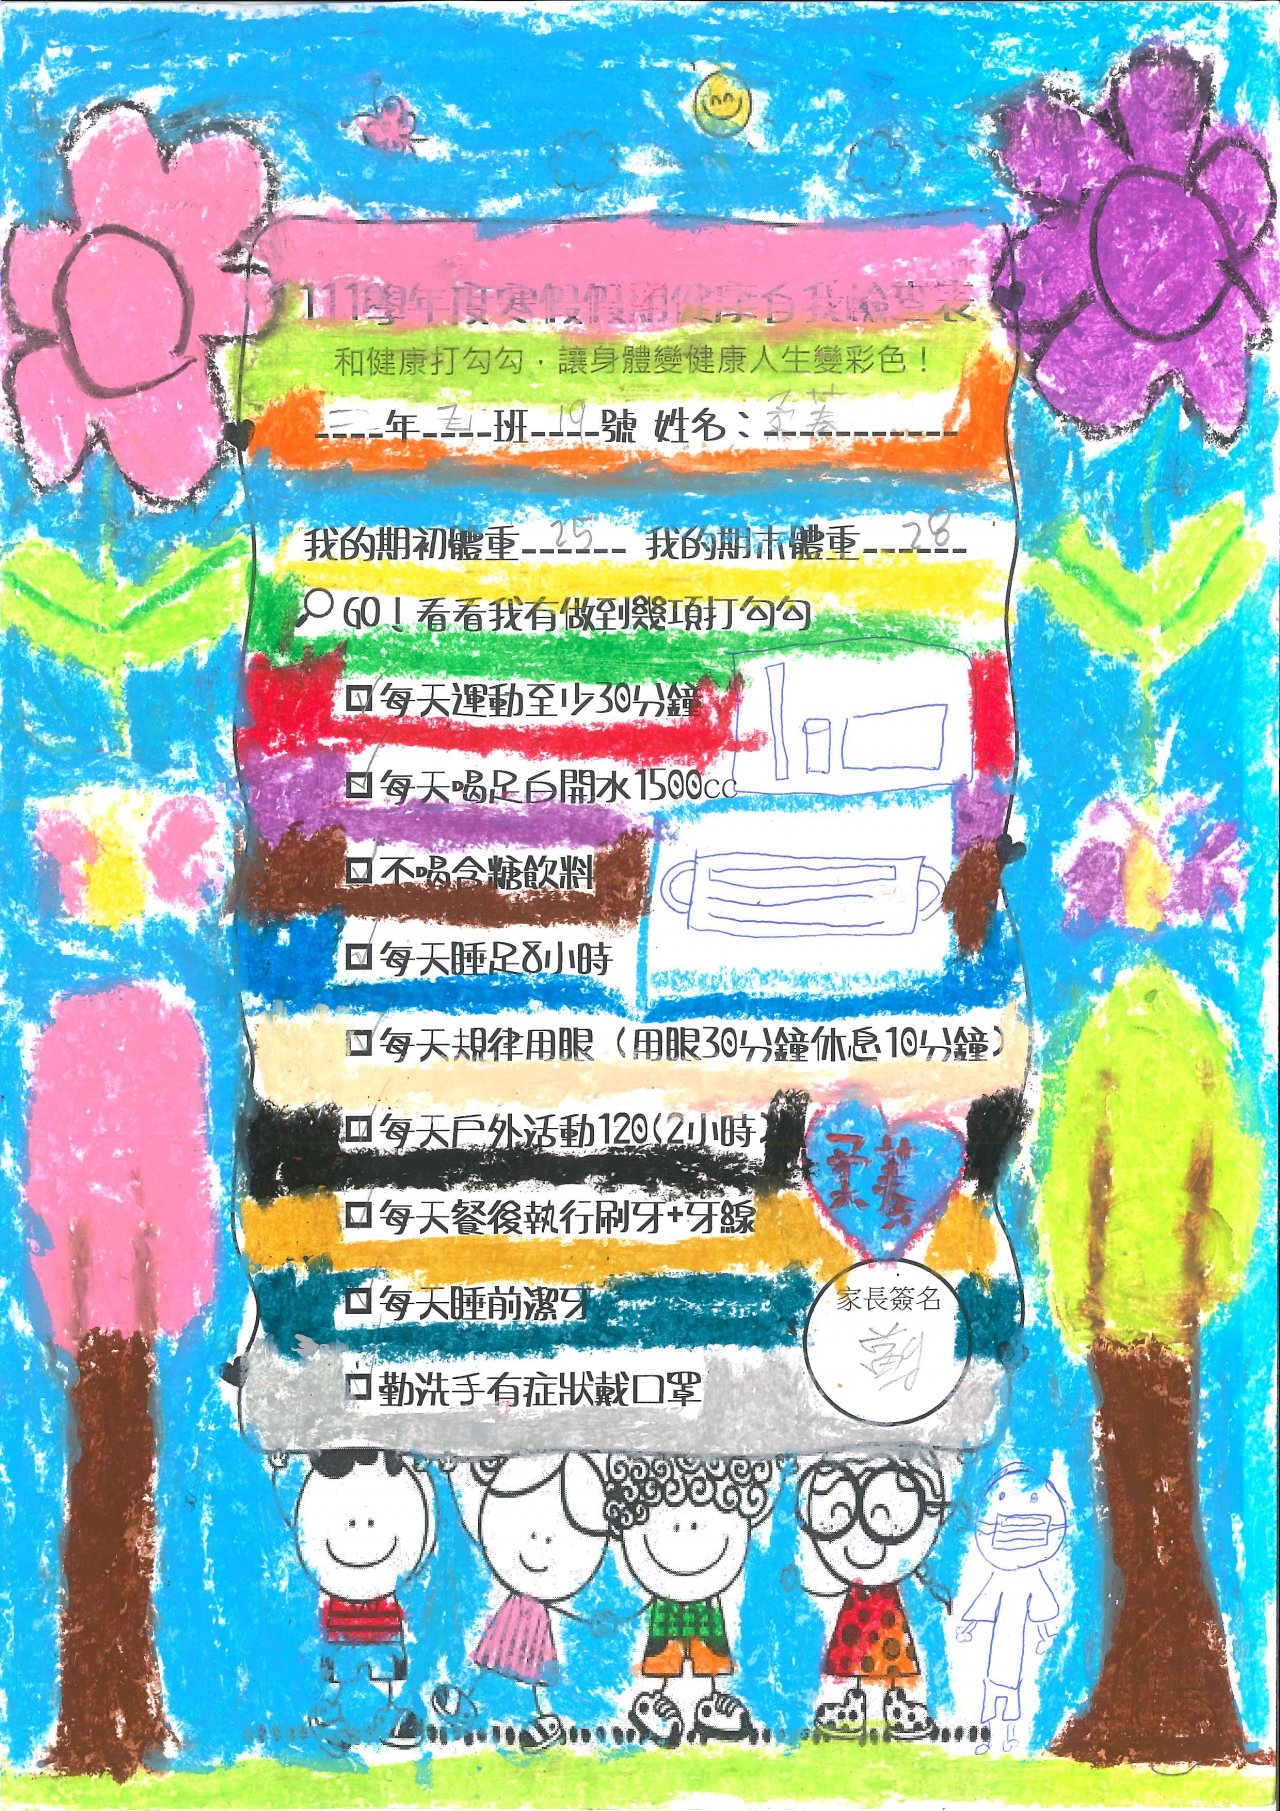 111學年度寒假假期健康自我檢查表
和健康打勾勾，讓身體變健康人生變彩色！
三年五班19號 姓名：柔蓁
我的期初體重25 我的期末體重28
GO！看看我有做到幾項打勾勾
☑每天運動至少30分鐘
☑每天喝足白開水1500cc
☑不喝含糖飲料
☑每天睡足8小時
☑每天規律用眼（用眼30分鐘休息10分鐘）
☑每天戶外活動120(2小時)
☑每天餐後執行刷牙+牙線
柔蓁
☑每天睡前潔牙
家長簽名
☑勤洗手有症狀戴口罩